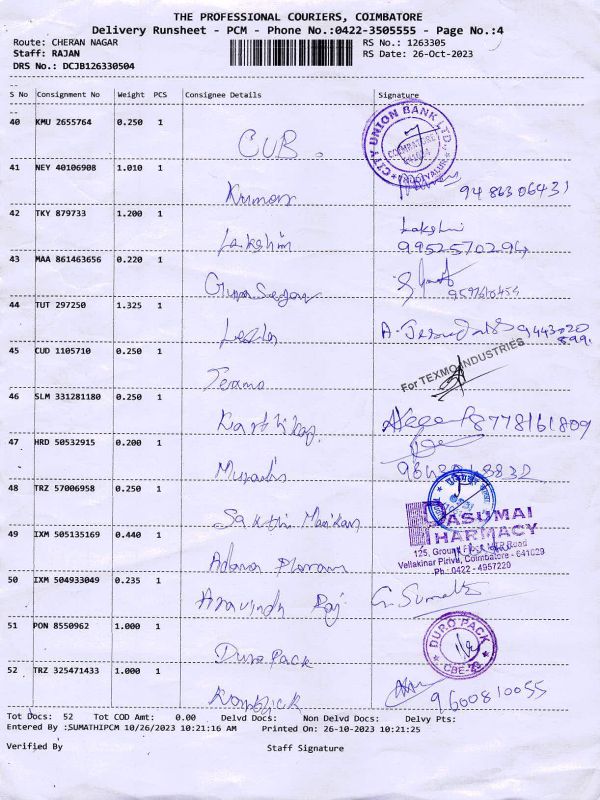 THE PROFESSIONAL COURIERS, COIMBATORE
Delivery Runsheet - PCM - Phone No.:0422-3505555 - Page No.:4
Route: CHERAN NAGAR RS No.: 1263305
Staff: RAJAN RS Date: 26-Oct-2023
DRS No.: DCJB126330504
S No Consignment No Weight PCS Consignee Details Signature
40 KMU 2655764 0.250 1 CUB. CITY UNION BANK LTD. COIMBATORE
41 NEY 40106908 1.010 1 Kumar 9486306431
42 TKY 879733 1.200 1 Lakshmi Lakshmi
9952570294
43 MAA 861463656 0.220 1 Gunasegar
44 TUT 297250 1.325 1 A. 9443020
899.
45 CUD 1105710 0.250 1 Texmo For TEXMO INDUSTRIES
46 SLM 331281180 0.250 1 Karthikay 8778161809
47 HRD 50532915 0.200 1
48 TRZ 57006958 0.250 1 Sakthi Manikan
PASUMAI
PHARMACY
49 IXM 505135169 0.440 1
125, Ground Road
Vellakinar Pirivu, Coimbatore - 641029
Ph : 0422 - 4957220
50 IXM 504933049 0.235 1 Aravindh Raj G. Sumathi
51 PON 8550962 1.000 1 Duro Pack DURO PACK CBE-29
52 TRZ 325471433 1.000 1 9600810055
Tot Docs: 52 Tot COD Amt: 0.00 Delvd Docs: Non Delvd Docs: Delvy Pts:
Entered By :SUMATHIPCM 10/26/2023 10:21:16 AM Printed On: 26-10-2023 10:21:25
Verified By Staff Signature